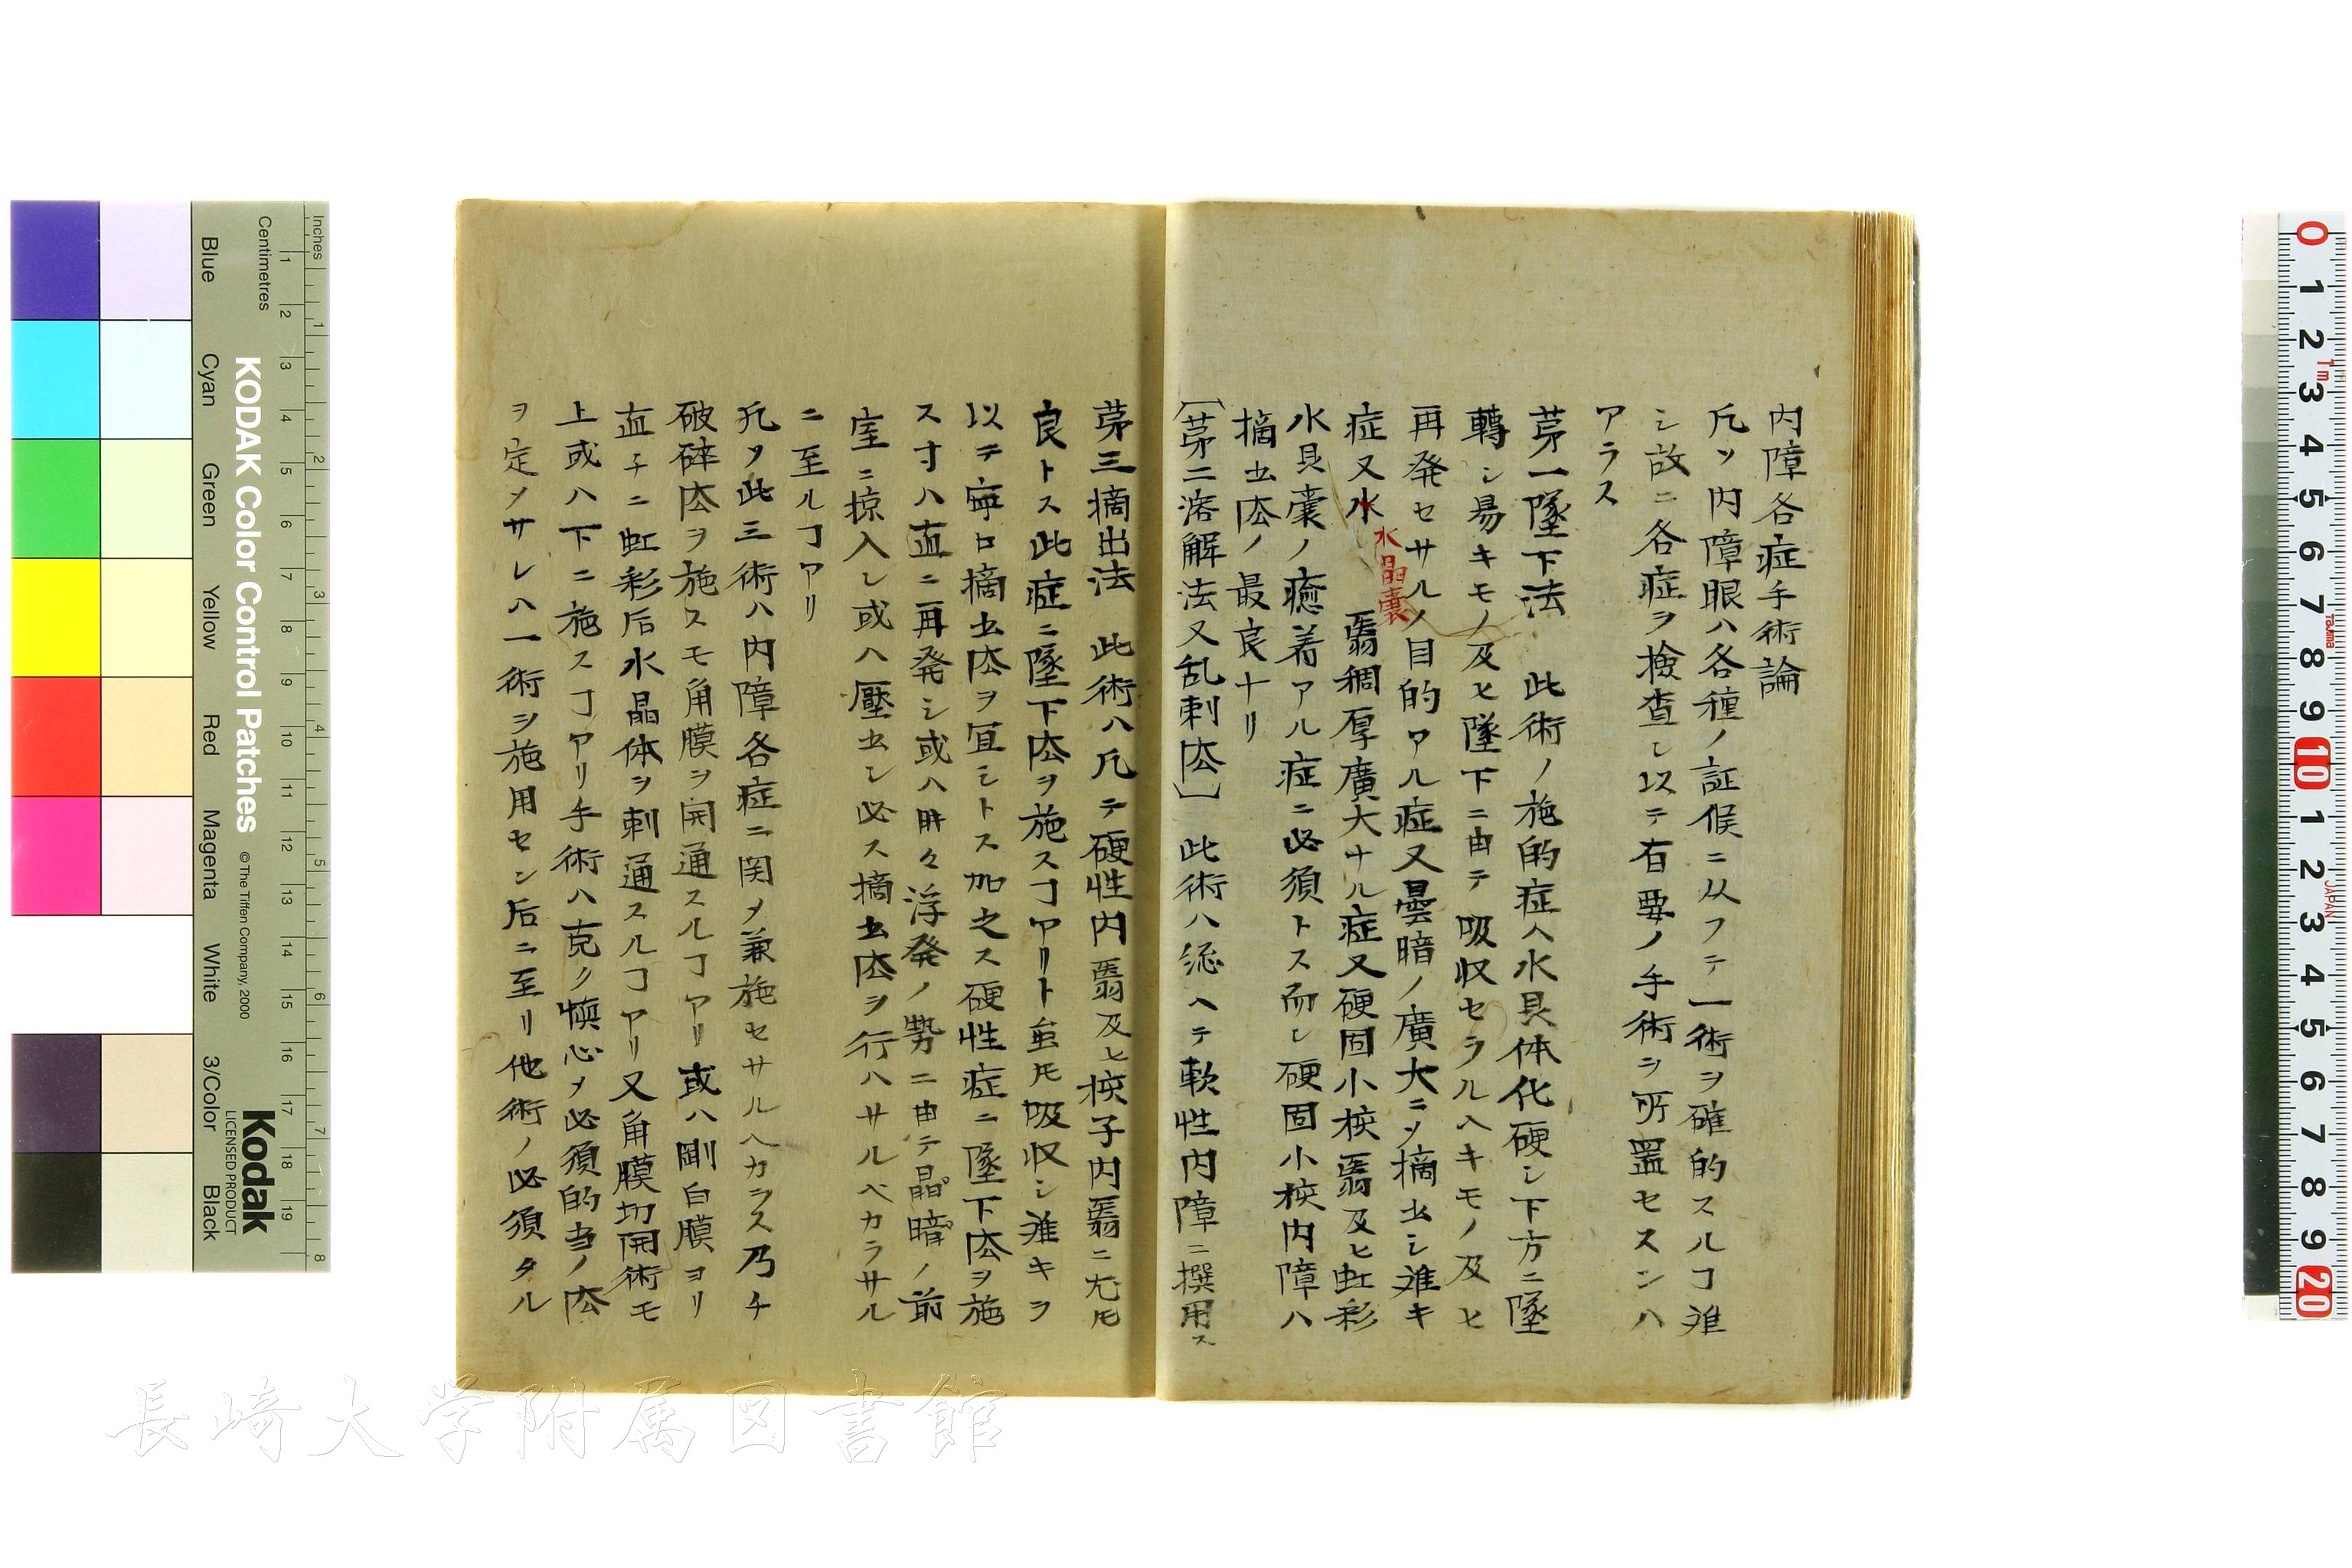 内障各症手術論
凡ソ内障眼ハ各種ノ証候ニ从フテ一術ヲ確的スルヿ难
シ故ニ各症ヲ検査シ以テ有要ノ手術ヲ所置セスンハ
アラス
苐一墜下法 此術ノ施的症ハ水晶体化硬シ下方ニ墜
轉シ易キモノ及ヒ墜下ニ由テ吸収セラルヘキモノ及ヒ
再発セサルノ目的アル症又曇暗ノ廣大ニソ摘出シ难キ
症又水 翳稠厚廣大ナル症又硬固小核翳及ヒ虹彩
水晶嚢
水晶嚢ノ癒着アル症ニ必須トス而シ硬固小核内障ハ
摘出法ノ最良ナリ
〔苐二溶解法又乱刺法〕 此術ハ総ヘテ軟性内障ニ撰用ス
苐三摘出法 此術ハ凡テ硬性内翳及ヒ核子内翳ニ尤モ
良トス此症ニ墜下法ヲ施スヿアリト虽𪜈吸収シ难キヲ
以テ寧ロ摘出法ヲ宜シトス加之ス硬性症ニ墜下法ヲ施
ス寸ハ直ニ再発シ或ハ時々浮発ノ勢ニ由テ晶暗ノ前
室ニ掠入シ或ハ壓出シ必ス摘出法ヲ行ハサルベカラサル
ニ至ルヿアリ
凡ソ此三術ハ内障各症ニ関メ兼施セサルヘカラス乃チ
破砕法ヲ施スモ角膜ヲ開通スルヿアリ或ハ剛白膜ヨリ
直チニ虹彩后水晶体ヲ刺通スルヿアリ又角膜切開術モ
上或ハ下ニ施スヿアリ手術ハ克ク慎心メ必須的当ノ法
ヲ定メサレハ一術ヲ施用セン后ニ至リ他術ノ必須タル
Inches
Centimetres
KODAK Color Control Patches
© The Tiffen Company, 2000
Kodak
LICENSED PRODUCT
Blue Cyan Green Yellow Red Magenta White 3/Color Black
1 2 3 4 5 6 7 8 9 10 11 12 13 14 15 16 17 18 19
1 2 3 4 5 6 7 8
0 1 2 3 4 5 6 7 8 9 10 1 2 3 4 5 6 7 8 9 20
1m
Tajima
JAPAN
長崎大学附属図書館